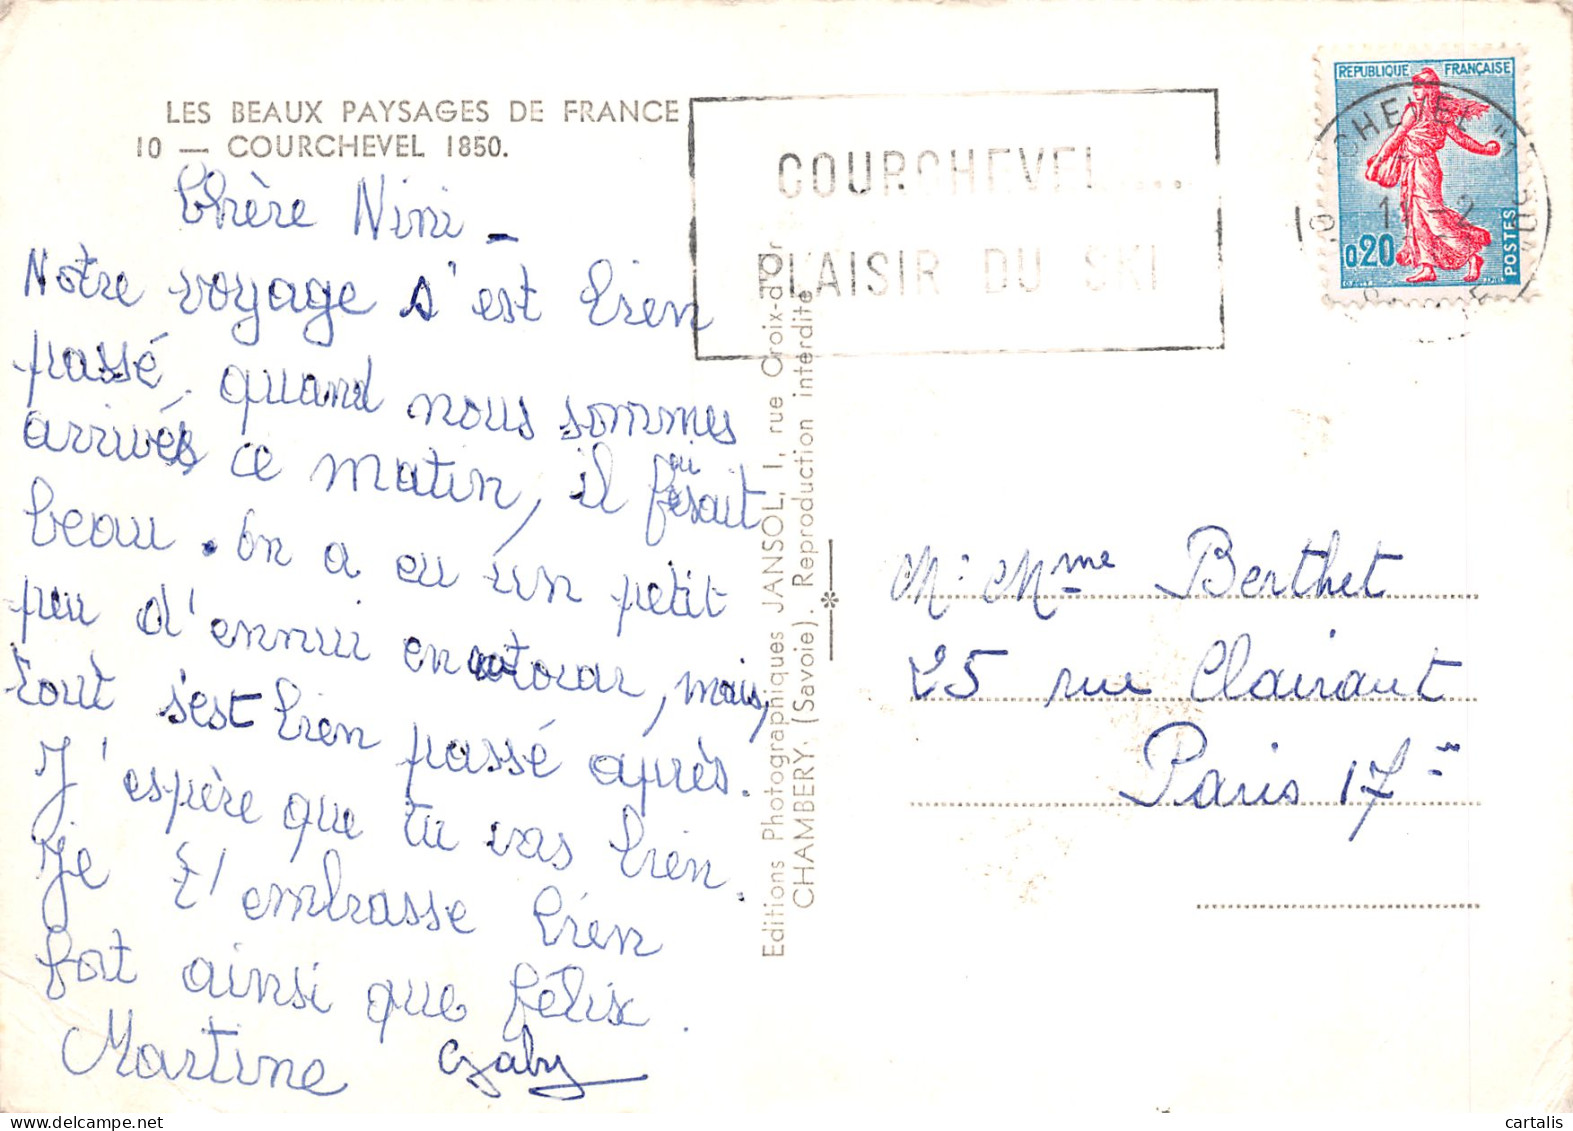 LES BEAUX PAYSAGES DE FRANCE
10 — COURCHEVEL 1850.
Chère Nini –
Notre voyage s'est bien
passé. quand nous sommes
arrivés ce matin, il faisait
beau. on a eu un petit
peu d'ennui en car, mais,
tout s'est bien passé après.
J'espère que tu vas bien.
Je t'embrasse bien
fort ainsi que félix.
Martine Gaby
Editions Photographiques JANSOL, 1, rue Croix-d'Or
CHAMBERY. (Savoie). Reproduction interdite
COURCHEVEL...
PLAISIR DU SKI
REPUBLIQUE FRANÇAISE
0,20
POSTES
11 -2
M. Mme Berthet
25 rue Clairaut
Paris 17e
cartalis